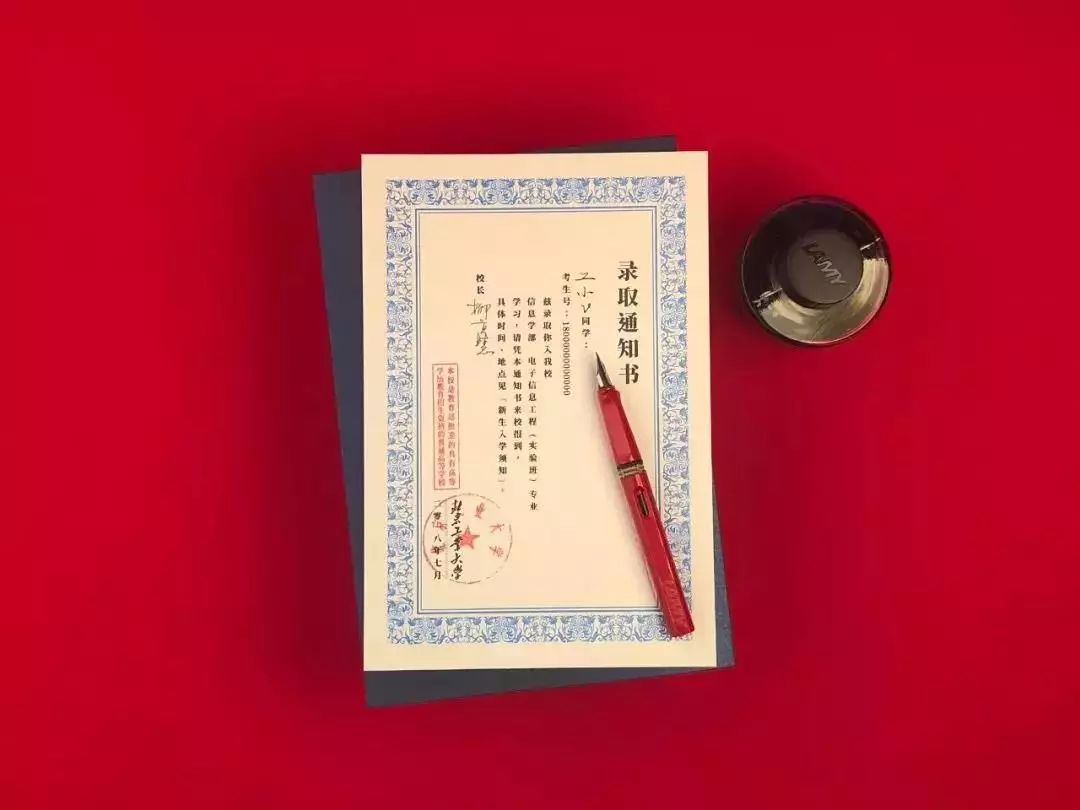 录取通知书
工小
同学：
考生号：18000000000000
兹录取你入我校
信息学部 电子信息工程（实验班）专业
学习，请凭本通知书来校报到，
具体时间、地点见「新生入学须知」。
校长
本校是教育部批准的具有高等
学历教育招生资格的普通高等学校
北京工业大学
二零一八年七月
LAMY